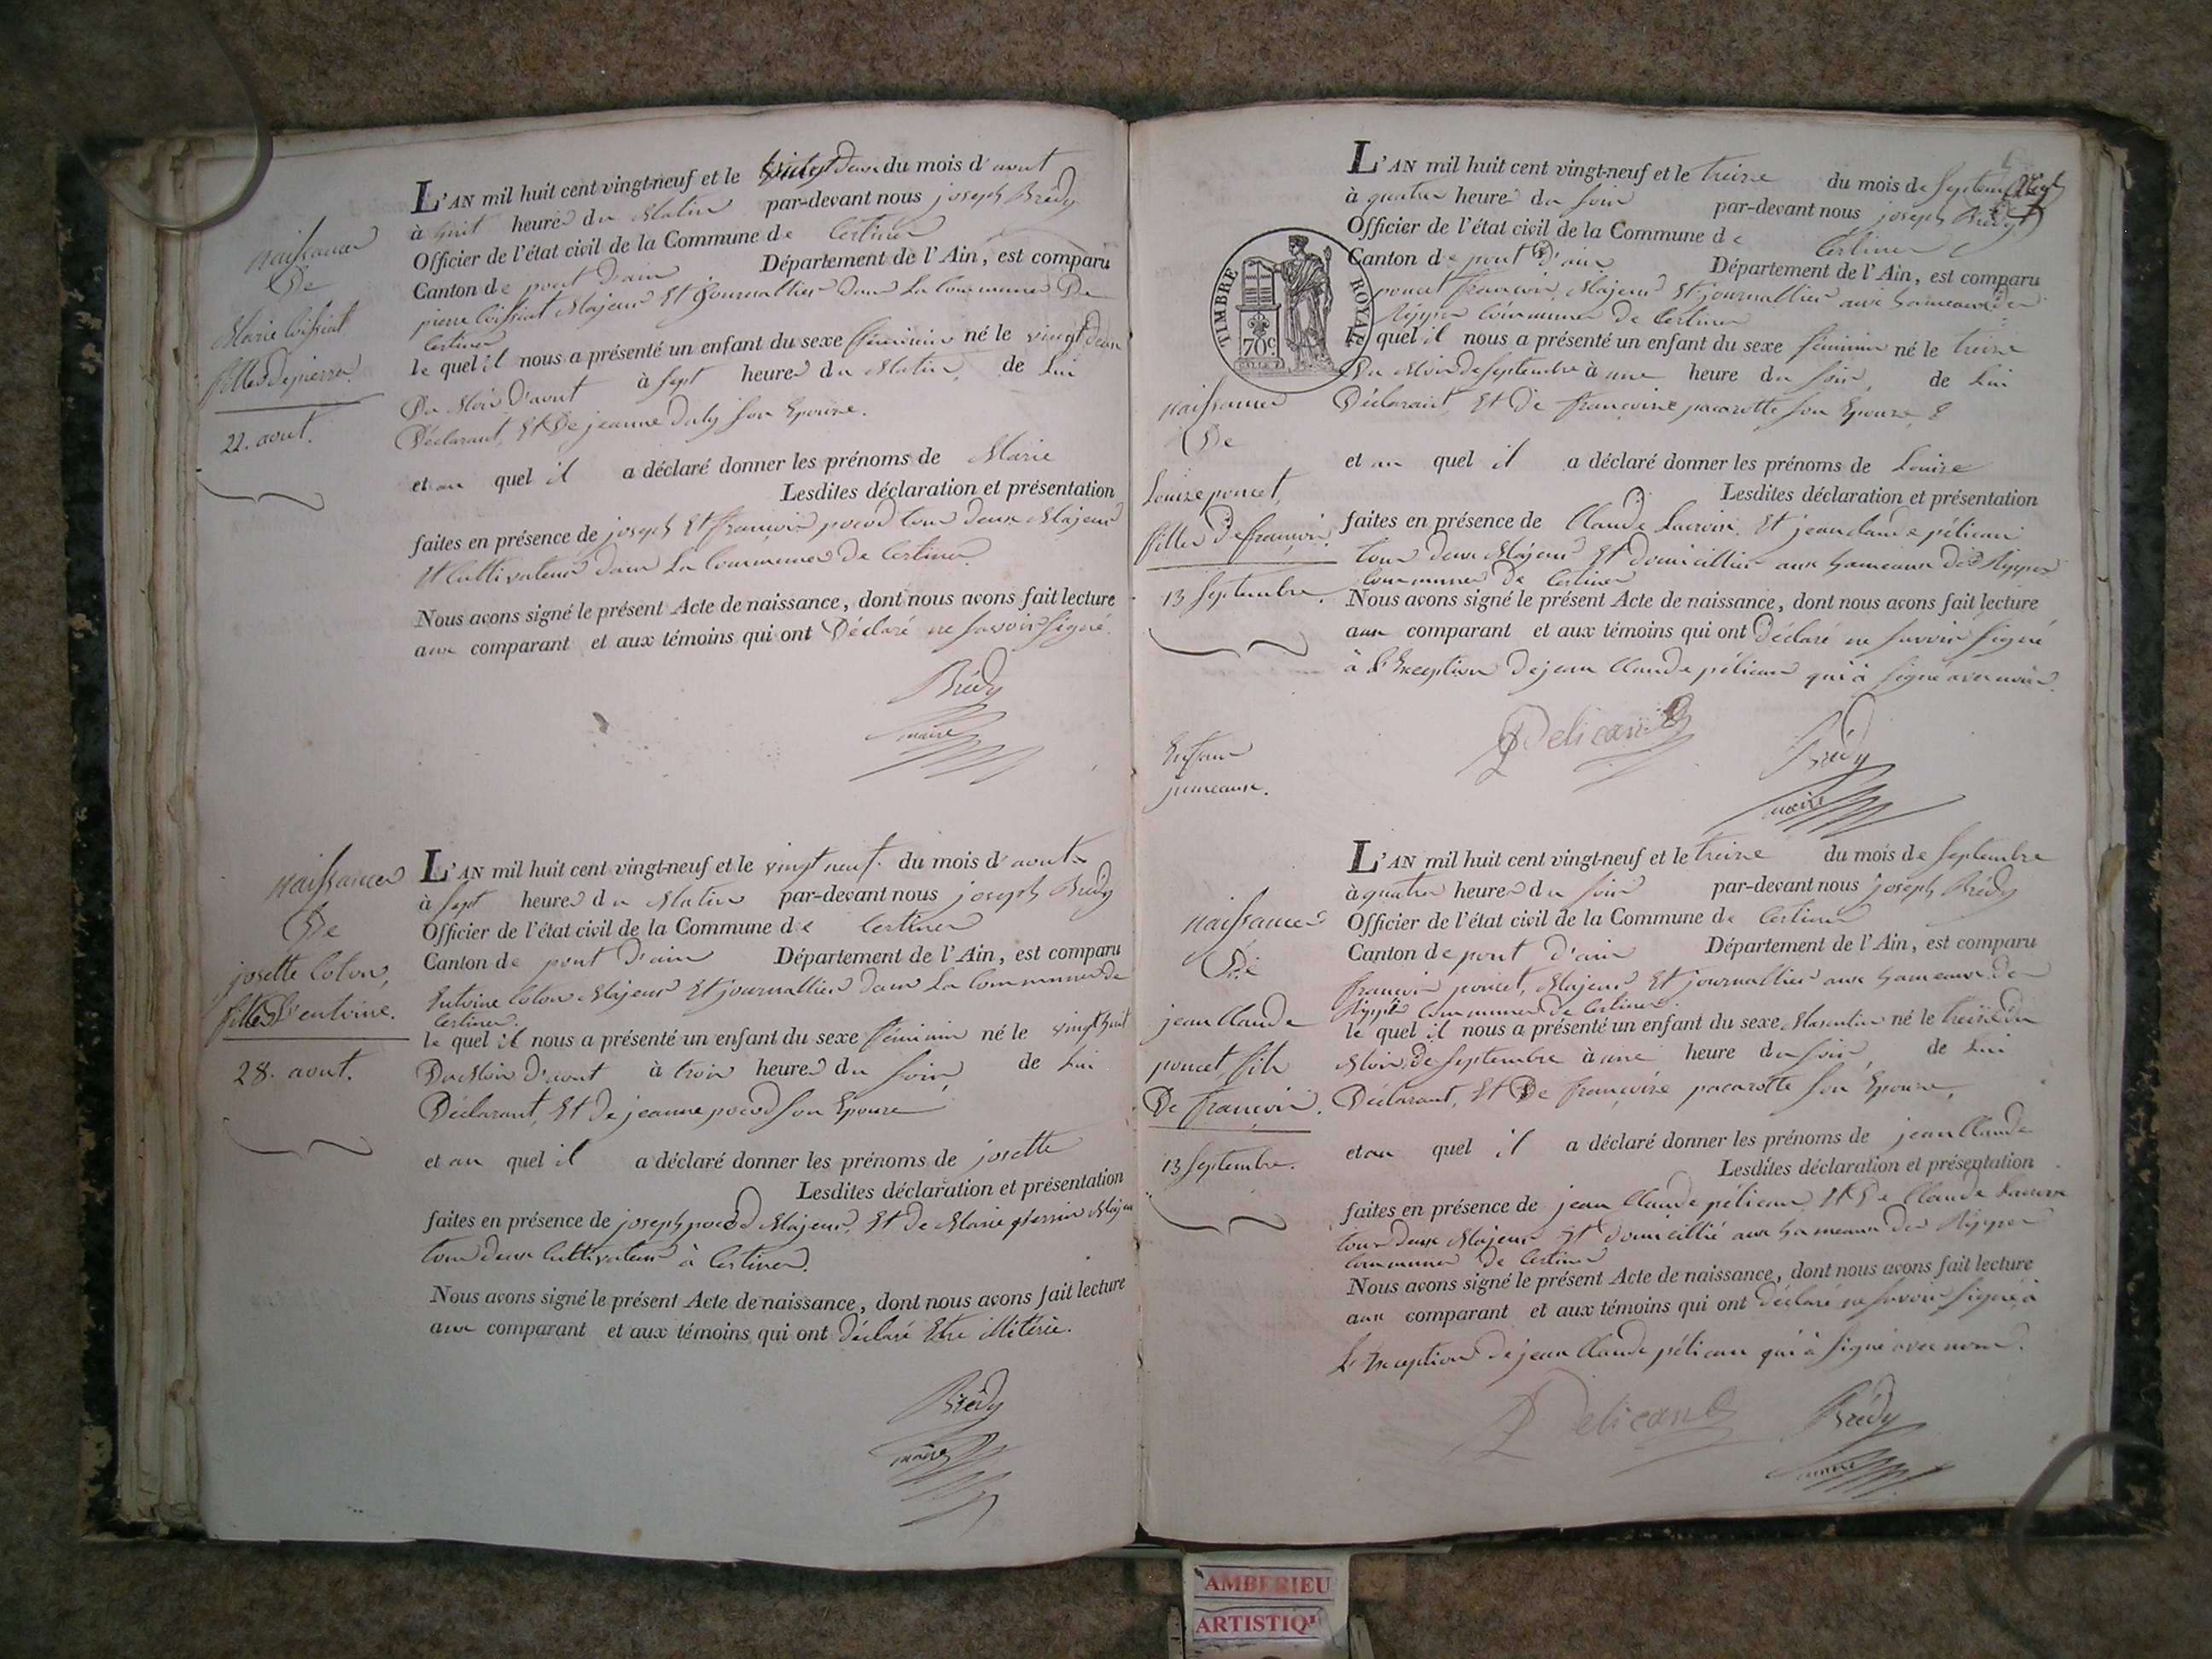 naissance
De
Marie Coissiat
fille De pierre.
22. aout.
L'AN mil huit cent vingt-neuf et le vingt deux du mois d'aout
à huit heures du Matin par-devant nous joseph Brédy
Officier de l'état civil de la Commune de Certines
Canton de pont D'ain Département de l'Ain, est comparu
pierre Coissiat Majeur Et Journallier Dans La Commune De
Certines
le quel il nous a présenté un enfant du sexe féminin né le vingt deux
Du Mois D'aout à sept heures du Matin, de Lui
Déclarant, Et De jeanne Daly son Epouse.
et au quel il a déclaré donner les prénoms de Marie
Lesdites déclaration et présentation
faites en présence de joseph Et françois pocod tous deux Majeurs
Et Cultivateurs dans La Commune De Certines.
Nous avons signé le présent Acte de naissance, dont nous avons fait lecture
aux comparant et aux témoins qui ont Déclaré ne savoir signé.
Brédy
maire
naissance
De
josette Coton,
fille D'entoine.
28. aout.
L'AN mil huit cent vingt-neuf et le vingt neuf du mois d'aout
à sept heures du Matin par-devant nous joseph Brédy
Officier de l'état civil de la Commune de Certines
Canton de pont D'ain Département de l'Ain, est comparu
Entoine Coton Majeur Et journallier Dans La Commune de
Certines.
le quel il nous a présenté un enfant du sexe féminin né le vingt huit
Du Mois D'aout à trois heures du soir, de Lui
Déclarant, Et De jeanne pocod son Epouse
et au quel il a déclaré donner les prénoms de josette
Lesdites déclaration et présentation
faites en présence de joseph pocod Majeur, Et de Marie Majeur
tous deux Cultivateurs à Certines.
Nous avons signé le présent Acte de naissance, dont nous avons fait lecture
aux comparant et aux témoins qui ont déclaré Etre illitérée.
Brédy
maire
TIMBRE ROYAL
70c.
naissance
De
Louise poncet,
fille De françois.
13 septembre.
L'AN mil huit cent vingt-neuf et le treise du mois de septembre
à quatre heures du soir par-devant nous joseph Brédy
Officier de l'état civil de la Commune de Certines
Canton de pont D'ain Département de l'Ain, est comparu
poncet françois, Majeur Et journallier aux hameaux des
Rippes Commune de Certines
le quel il nous a présenté un enfant du sexe féminin né le treise
Du Mois De septembre à une heure du soir, de Lui
Déclarant, Et De françoise pacarotte son Epouse
et au quel il a déclaré donner les prénoms de Louise
Lesdites déclaration et présentation
faites en présence de Claude Lacroix, Et jean claude pélican
tous deux Majeurs Et domicilliés aux hameaux des Rippes
Commune De Certines
Nous avons signé le présent Acte de naissance, dont nous avons fait lecture
aux comparant et aux témoins qui ont Déclaré ne savoir signé
à L'Exception De jean Claude pélican qui à signé avec nous.
Pelican
Brédy
maire
Enfans
jumeaux.
naissance
De
jean Claude
poncet fils
De françois.
13 septembre.
L'AN mil huit cent vingt-neuf et le treise du mois de septembre
à quatre heures du soir par-devant nous joseph Brédy
Officier de l'état civil de la Commune de Certines
Canton de pont D'ain Département de l'Ain, est comparu
françois poncet, Majeur Et journallier aux hameaux des
Rippes Commune de Certines.
le quel il nous a présenté un enfant du sexe Masculin né le treise du
Mois De septembre à une heure du soir, de Lui
Déclarant, Et De françoise pacarotte son Epouse,
et au quel il a déclaré donner les prénoms de jean Claude
Lesdites déclaration et présentation
faites en présence de jean Claude pélican, Et De Claude Lacroix
tous deux Majeurs Et domicillié aux hameaux des Rippes
Commune De Certines
Nous avons signé le présent Acte de naissance, dont nous avons fait lecture
aux comparant et aux témoins qui ont déclaré ne savoir signé, à
L'Exception de jean Claude pélican qui à signé avec nous.
Pelican
Brédy
maire
AMBERIEU
ARTISTIQ